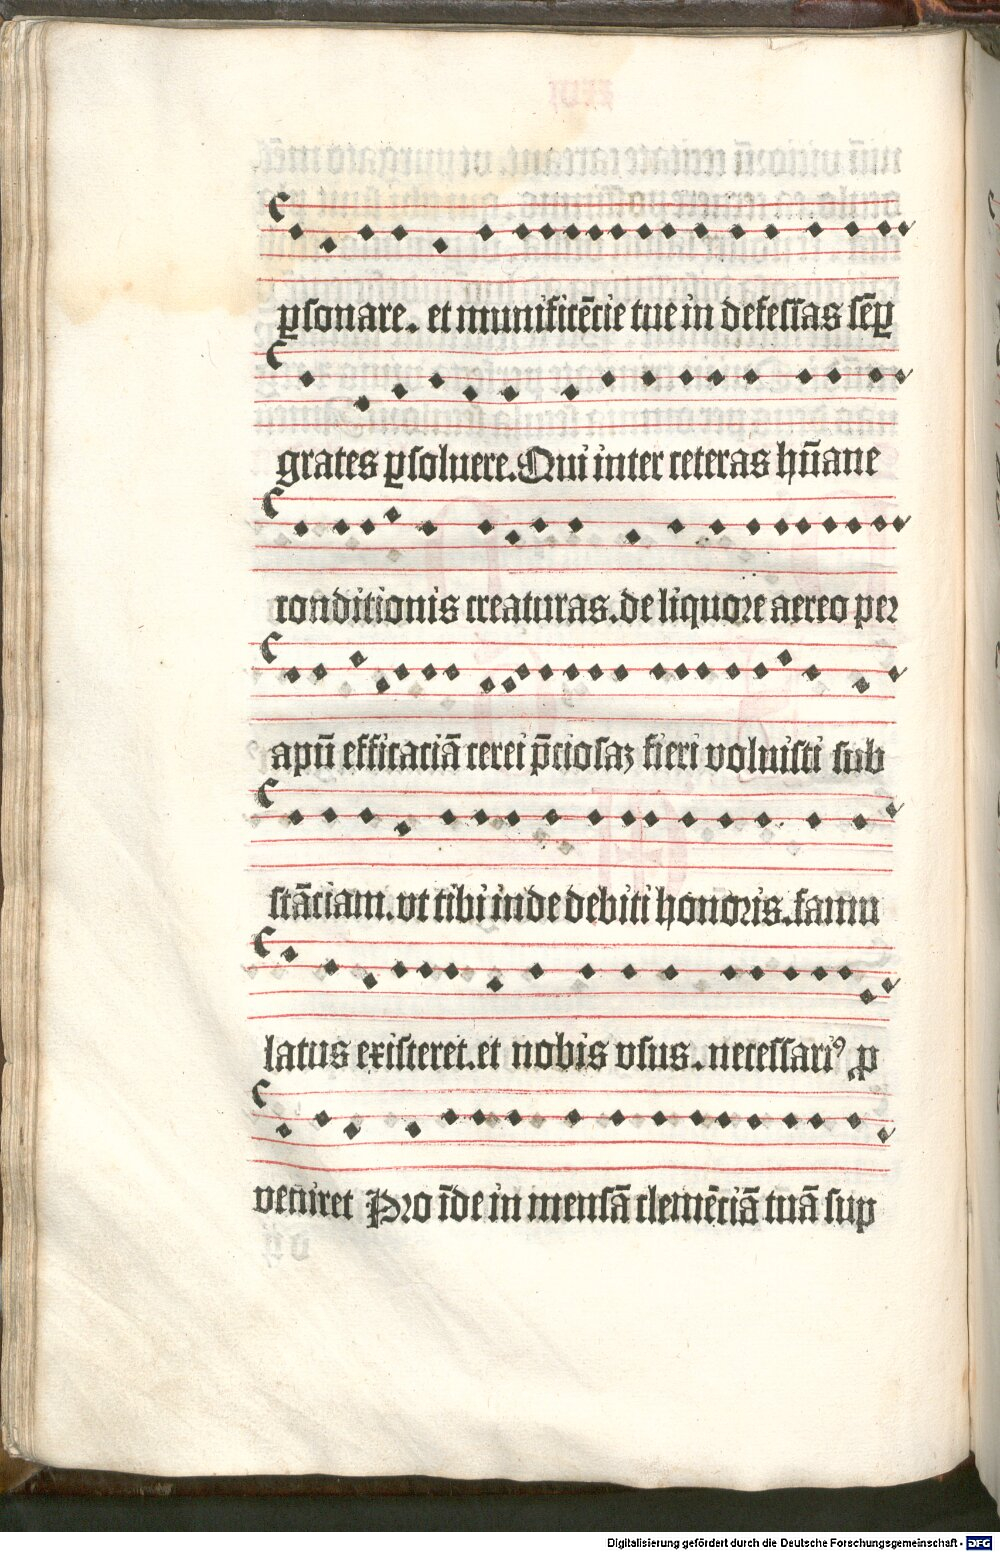 ꝑsonare. et munificēcie tue in defessas sēꝑ
grates ꝑsoluere. Qui inter ceteras hūane
conditionis creaturas. de liquore aereo per
apū efficaciā cerei p̄ciosaꝫ fieri voluisti sub
stāciam. vt tibi inde debiti honoris. famu
latus existeret. et nobis vsus. necessariꝰ ꝓ
veniret Pro īde in mensā clemēciā tuā sup
Digitalisierung gefördert durch die Deutsche Forschungsgemeinschaft - DFG